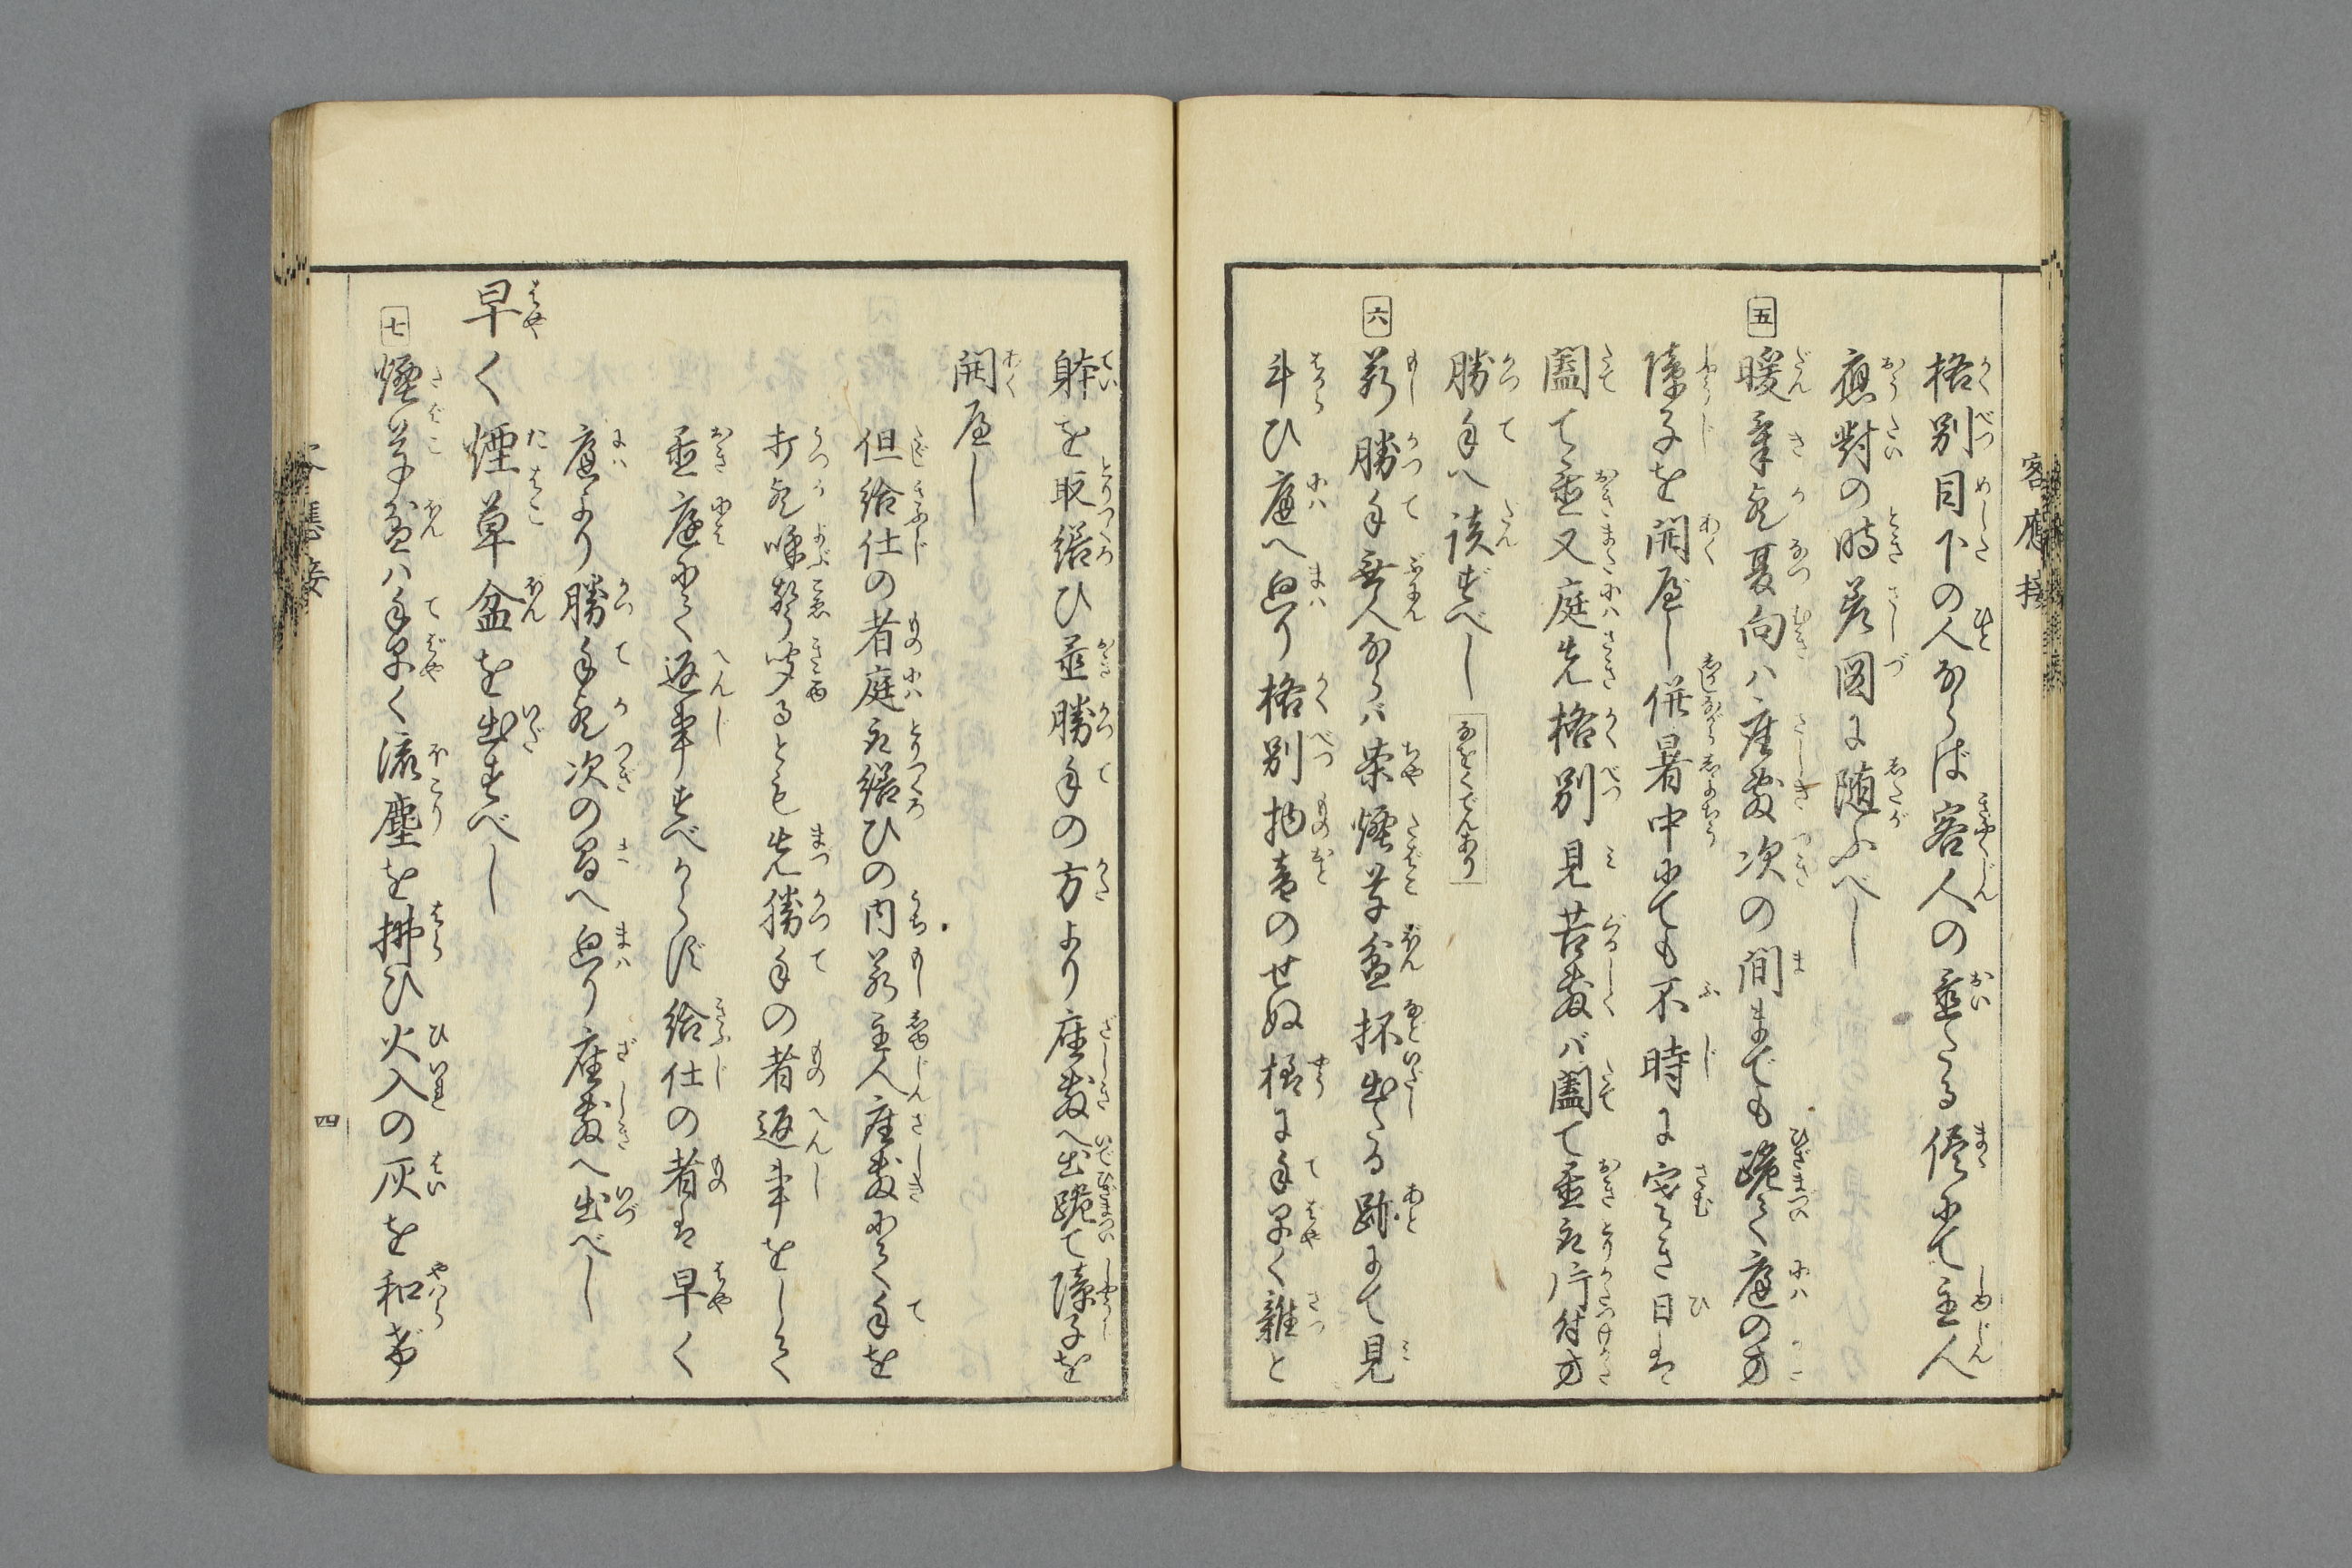 客應接
格別目下の人ならば客人の置たる侭にて主人
應對の時差図に随ふべし
五
暖氣歟夏向ハ座敷次の間までも跪て庭の方
障子を開べし併暑中にても不時に寒き日は
闔て置又庭先格別見苦敷バ闔て置取片付方
勝手へ談ずべし
なをくでんあり
六
若勝手無人ならバ茶煙草盆抔出たる跡にて見
斗ひ庭へ廻り格別物音のせぬ様に手早く雑と
躰を取繕ひ置勝手の方より座敷へ出跪て障子を
開べし
但給仕の者庭取繕ひの内若主人座敷にて手を
打歟呼聲聞るとも先勝手の者返事をして
置庭にて返事すべからず給仕の者は早く
庭より勝手歟次の間へ廻り座敷へ出べし
早く煙草盆を出すべし
七
煙草盆ハ手早く流塵を拂ひ火入の灰を和げ
客應接
四